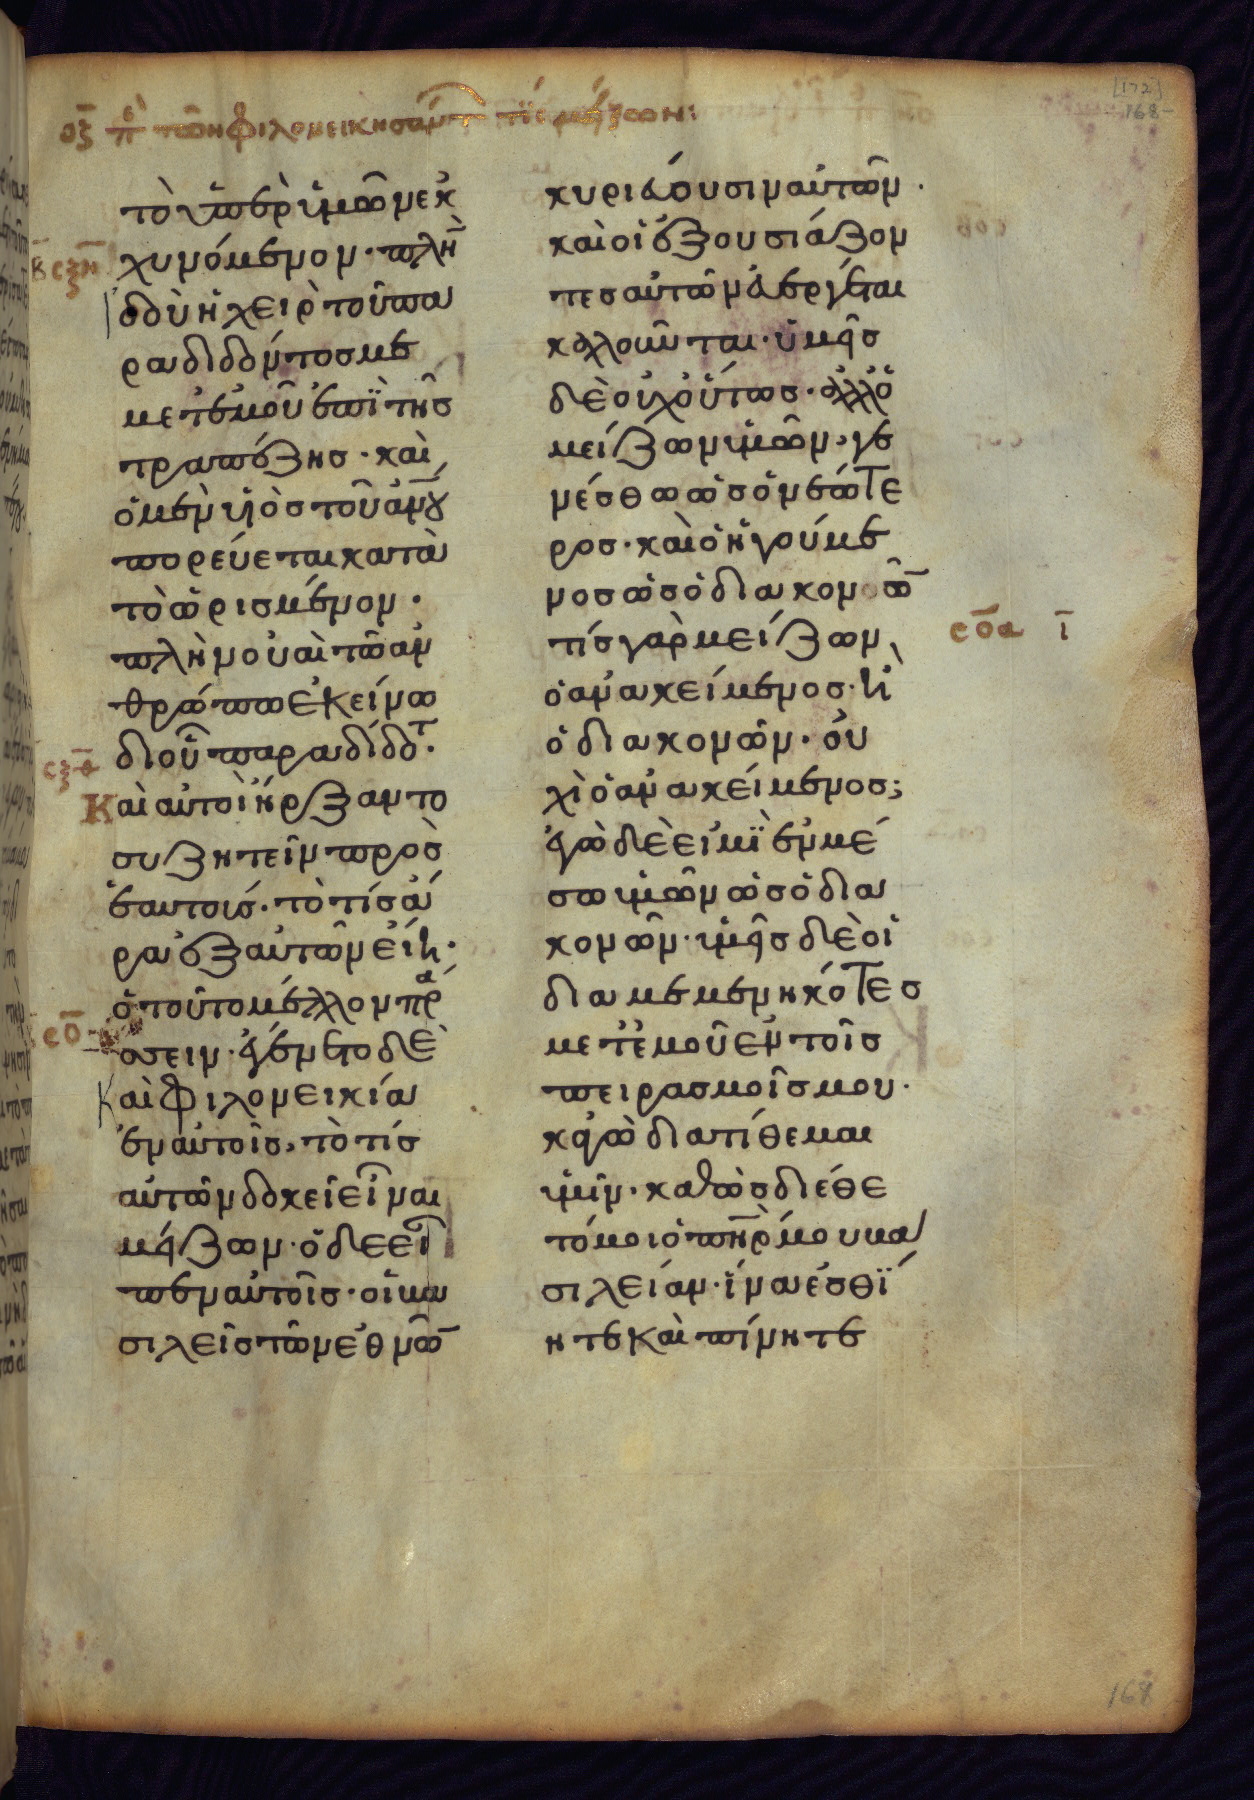 οξ πε τῶν φιλονεικησάντ τίς μείζων:
[172]
168
τὸ ὑπὲρ ὑμῶν ἐκ
χυνόμενον· πλὴ
σξη
ἰδοὺ ἡ χεὶρ τοῦ πα
ραδιδόντος με
μετ' ἐμοῦ ἐπϊ τῆς
τραπέζης· καὶ
ὁ μὲν υἱὸς τοῦ ἀνου
πορεύεται κατὰ
τὸ ὡρισμένον·
πλὴν οὐαὶ τῶ ἀν
θρώπω ἐκείνω
δι οὗ παραδίδοτ·
σξθ
Καὶ αὐτοὶ ἤρξαντο
συζητεῖν πρὸς
ἑαυτούς· τὸ τίς ἄ
ρα ἐξ αὐτῶν εἴη·
ὁ τοῦτο μέλλον πρά
σο
σσειν· ἐγένετο δὲ
καὶ φιλονεικία
ἐν αὐτοῖς, τὸ τίς
αὐτῶν δοκεῖ εἶναι
μείζων· ὁ δὲ εἶ
πεν αὐτοῖς· οἱ βα
σιλεῖς τῶν ἐθνῶ
κυριεύουσιν αὐτῶν·
καὶ οἱ ἐξουσιάζον
τες αὐτῶν εὐεργέται
καλλοῦνται· ὑμεῖς
δὲ οὐχ οὕτως· ἀλλ' ὁ
μείζων ὑμῶν· γε
νέσθω ὡς ὁ νεώτε
ρος· καὶ ὁ ἡγούμε
νος ὡς ὁ διακονῶ
τίς γὰρ μείζων,
σοα ι
ὁ ἀνακείμενος· ἢ
ὁ διακονῶν· οὐ
χὶ ὁ ἀνακείμενος;
ἐγὼ δὲ εἰμϊ ἐν μέ
σω ὑμῶν ὡς ὁ δια
κονῶν· ὑμεῖς δὲ οἱ
διαμεμενηκότες
μετ' ἐμοῦ ἐν τοῖς
πειρασμοῖς μου·
κἀγὼ διατίθεμαι
ὑμῖν· καθὼς διέθε
τό μοι ὁ πηρ μου βα
σιλείαν· ἵνα ἐσθΐ
ητε καὶ πίνητε
168